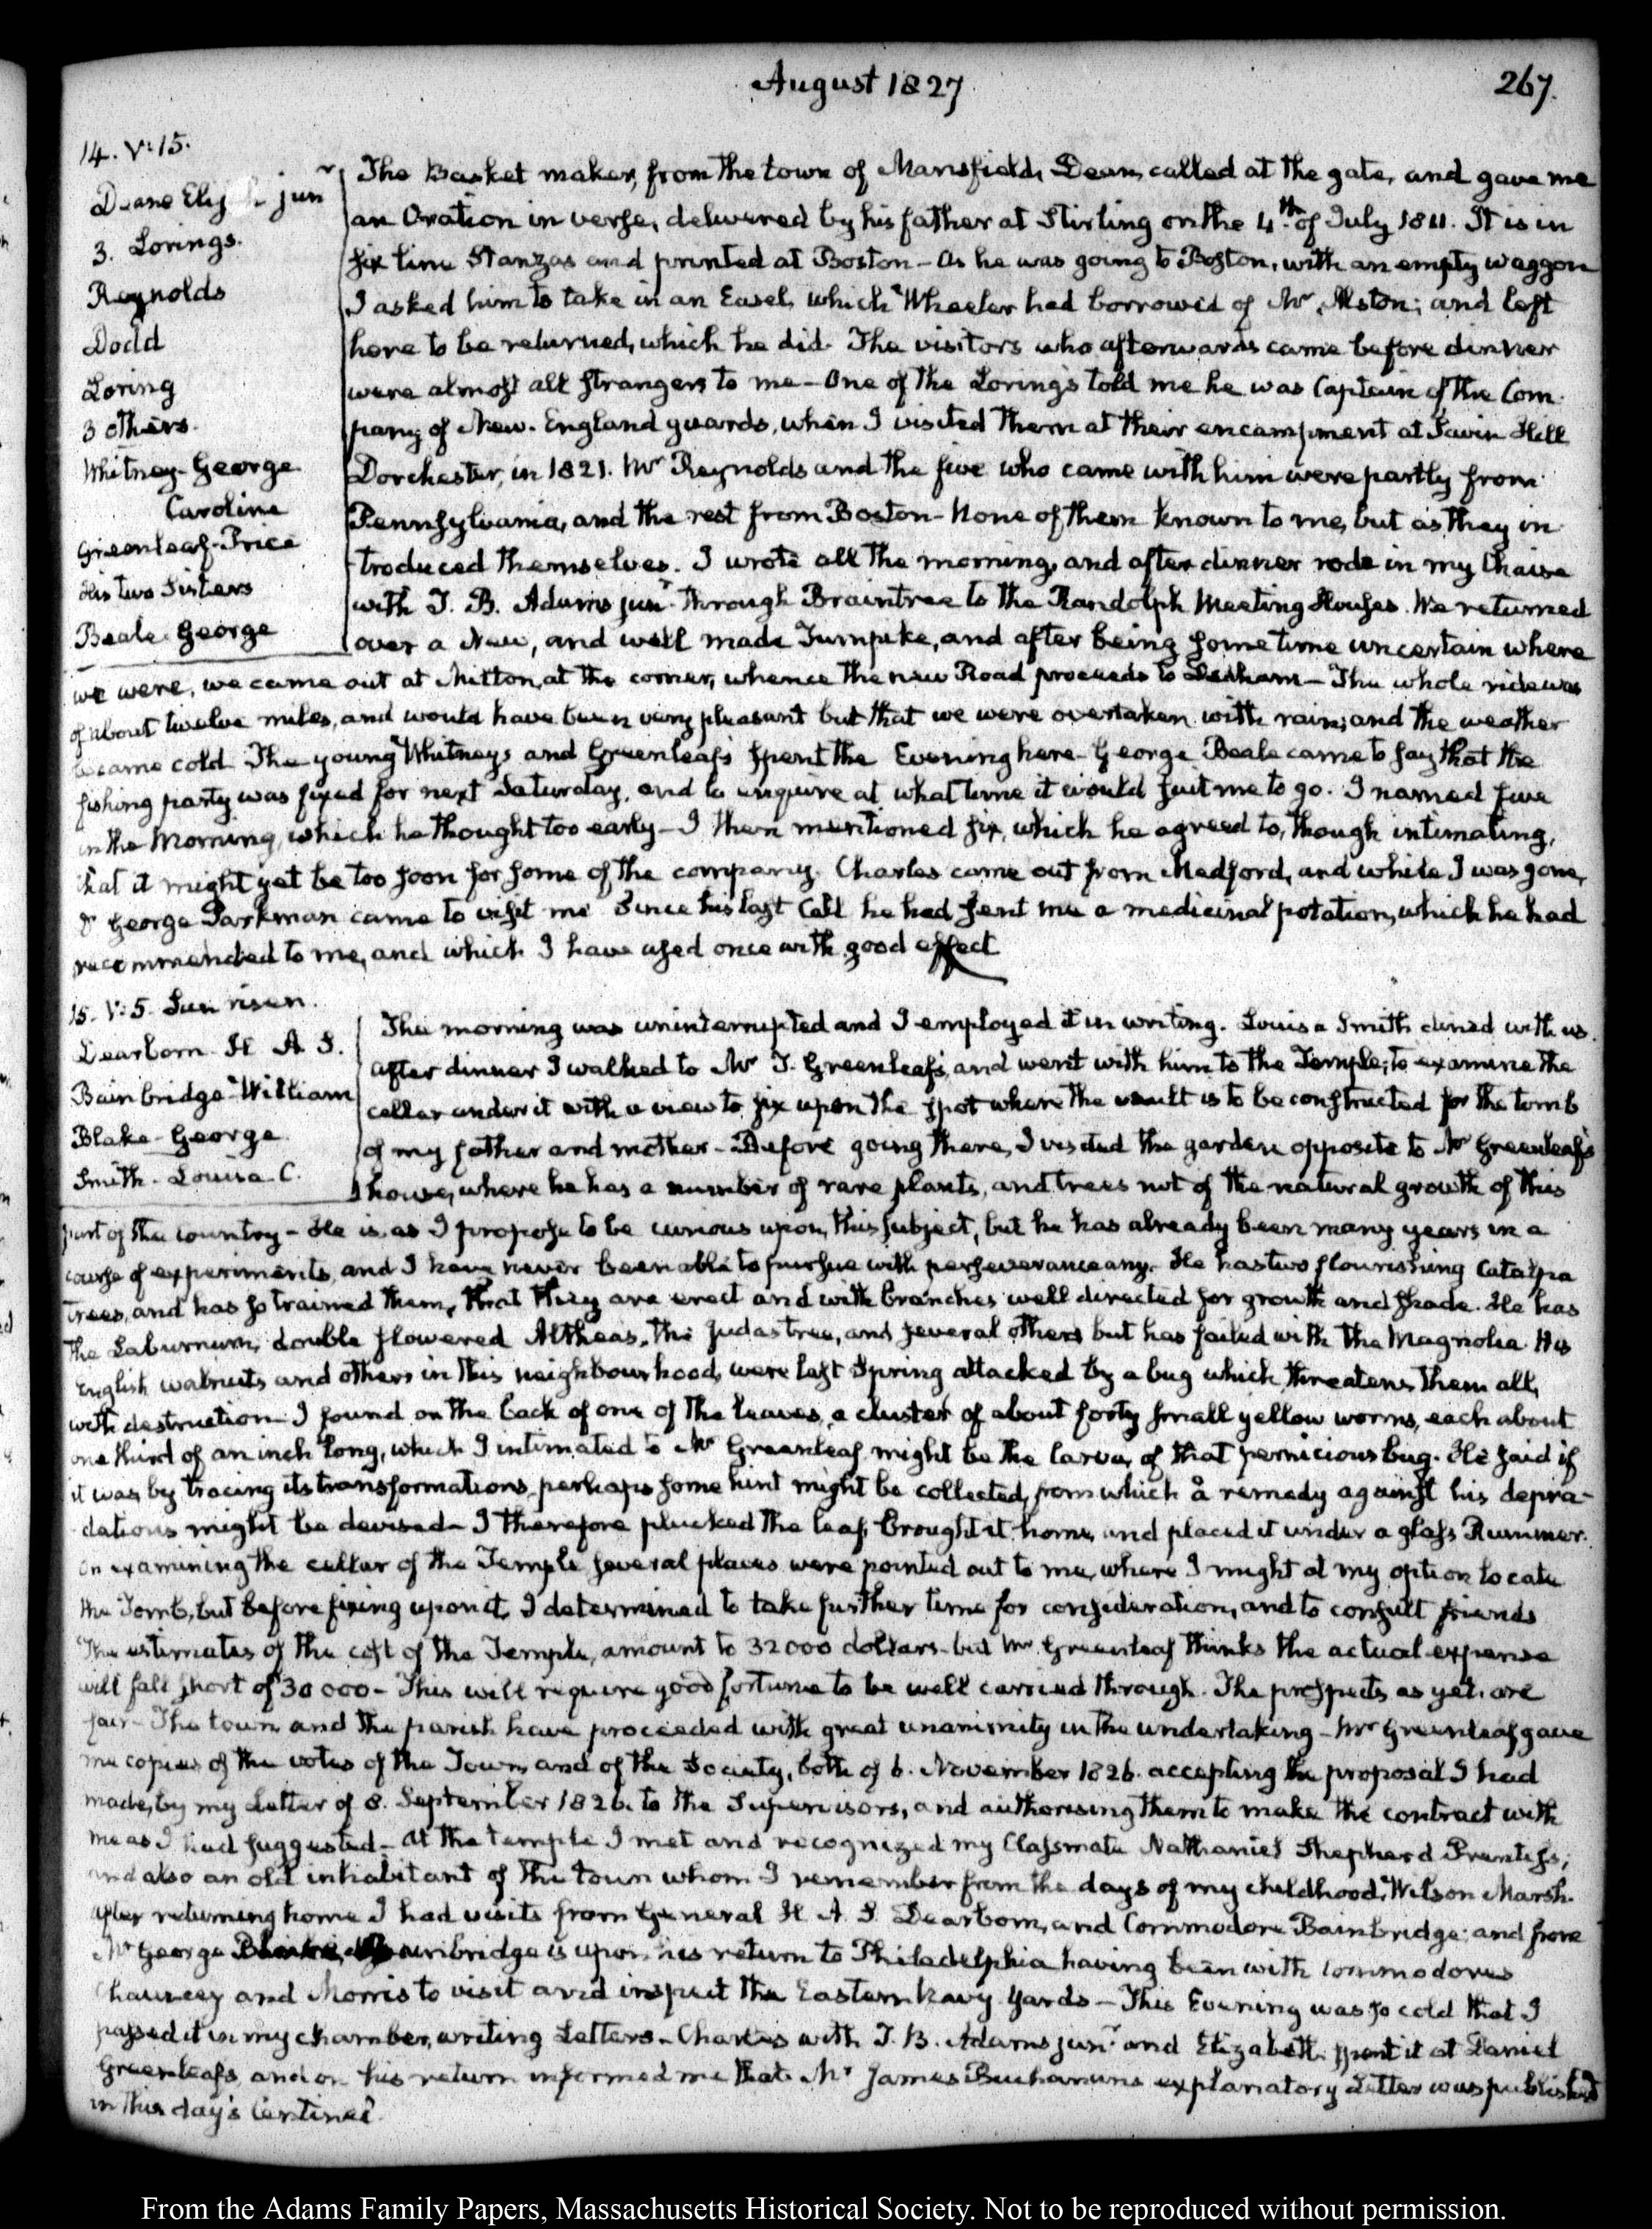 August 1827
267.
14. V:15.
Deane Elij jun.r
3. Lorings.
Reynolds
Dodd
Loring
3 others.
Whitney- George
Caroline
Greenleaf- Price
His two Sisters
Beale- George
The Basket maker, from the town of Mansfield, Dean, called at the gate, and gave me
an Oration in verse, delivered by his father at Stirling on the 4th. of July 1811. It is in
six line Stanzas and printed at Boston- As he was going to Boston, with an empty waggon
I asked him to take in an Easel, which Wheeler had borrowed of Mr. Alston; and left
here to be returned, which he did. The visitors who afterwards came before dinner
were almost all strangers to me- One of the Loring's told me he was Captain of the Com-
pany of New-England guards, when I visited them at their encampment at Savin Hill
Dorchester, in 1821. Mr Reynolds and the five who came with him were partly from
Pennsylvania, and the rest from Boston- None of them known to me, but as they in-
troduced themselves. I wrote all the morning, and after dinner rode in my Chaise
with T. B. Adams junr. through Braintree to the Randolph Meeting Houses. We returned
over a New, and well made Turnpike, and after being some time uncertain where
we were, we came out at Milton, at the corner, whence the new Road proceeds to Dedham- The whole ride was
of about twelve miles, and would have been very pleasant but that we were overtaken with rain; and the weather
became cold. The young Whitneys and Greenleafs spent the Evening here- George Beale came to say that the
fishing party was fixed for next Saturday, and to enquire at what time it would suit me to go. I named five
in the Morning, which he thought too early- I then mentioned six, which he agreed to, though intimating,
that it might yet be too soon for some of the company. Charles came out from Medford, and while I was gone,
Dr George Parkman came to visit me. Since his last Call he had sent me a medicinal potation, which he had
recommended to me, and which I have used once with good effect
15. V:5. Sun risen.
Dearborn H A. S.
Bainbridge- William
Blake- George
Smith- Louisa C.
The morning was uninterrupted and I employed it in writing. Louisa Smith dined with us.
After dinner I walked to Mr T. Greenleaf's, and went with him to the Temple; to examine the
cellar under it with a view to fix upon the spot where the vault is to be constructed for the tomb
of my father and mother- Before going there, I visited the garden opposite to Mr Greenleaf's
house, where he has a number of rare plants, and trees not of the natural growth of this
part of the country- He is as I propose to be curious upon this subject, but he has already been many years in a
course of experiments, and I have never been able to pursue with perseverance any. He has two flourishing Catalpa
trees, and has so trained them, that they are erect and with branches well directed for growth and shade. He has
the Laburnum, double flowered Altheas, the Judas tree, and several others but has failed with the Magnolia. His
English walnuts and others in this neighbourhood, were last Spring attacked by a bug which threatens them all,
with destruction- I found on the back of one of the leaves, a cluster of about forty small yellow worms, each about
one third of an inch long, which I intimated to Mr Greenleaf might be the larva, of that pernicious bug. He said if
it was by tracing its transformations, perhaps some hint might be collected, from which a remedy against his depra-
dations might be devised- I therefore plucked the leaf, brought it home, and placed it under a glass Rummer.
On examining the cellar of the Temple several places were pointed out to me, where I might at my option locate
the Tomb, but before fixing upon it, I determined to take further time for consideration, and to consult friends
The estimates of the cost of the Temple, amount to 32000 dollars- but Mr Greenleaf thinks the actual expense
will fall short of 30000- This will require good fortune to be well carried through. The prospects as yet are
fair- The town and the parish have proceeded with great unanimity in the undertaking- Mr Greenleaf gave
me copies of the votes of the Town, and of the Society, both of 6. November 1826. accepting the proposal I had
made, by my Letter of 8. September 1826. to the Supervisors, and authorising them to make the contract with
me as I had suggested- At the temple I met and recognized my Classmate Nathaniel Shepherd Prentiss;
and also an old inhabitant of the town whom I remember from the days of my childhood, Wilson Marsh.
After returning home I had visits from General H. A. S. Dearborn, and Commodore Bainbridge; and from
Mr George Blake. Bainbridge is upon his return to Philadelphia having been with Commodores
Chauncey and Morris to visit and inspect the Eastern Navy Yards- This Evening was so cold that I
passed it in my chamber, writing Letters- Charles with T. B. Adams junr. and Elizabeth spent it at Daniel
Greenleaf's, and on his return informed me that Mr James Buchanans explanatory Letter was published
in this day's Centinel.
From the Adams Family Papers, Massachusetts Historical Society. Not to be reproduced without permission.